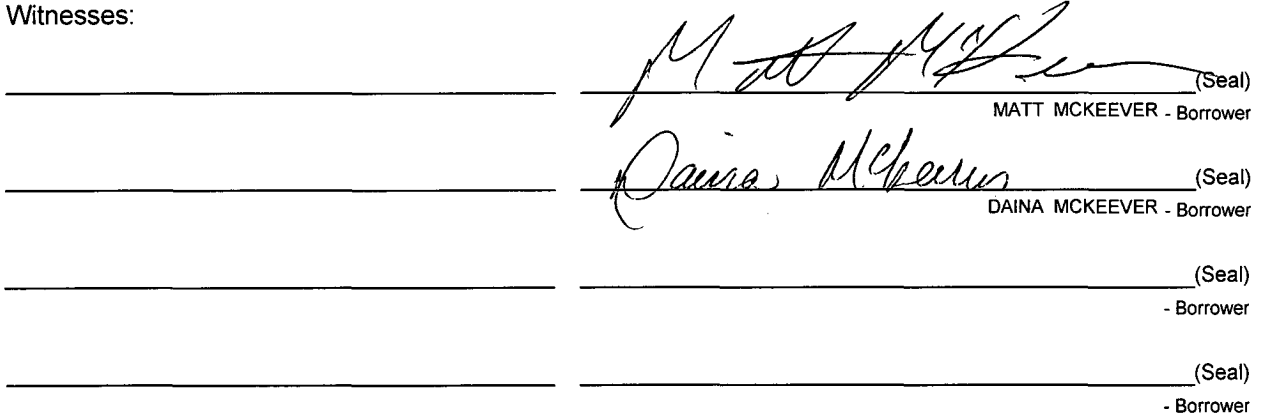 Witnesses:
Matt McKeever (Seal)
MATT MCKEEVER - Borrower
Daina McKeever (Seal)
DAINA MCKEEVER - Borrower
(Seal)
- Borrower
(Seal)
- Borrower